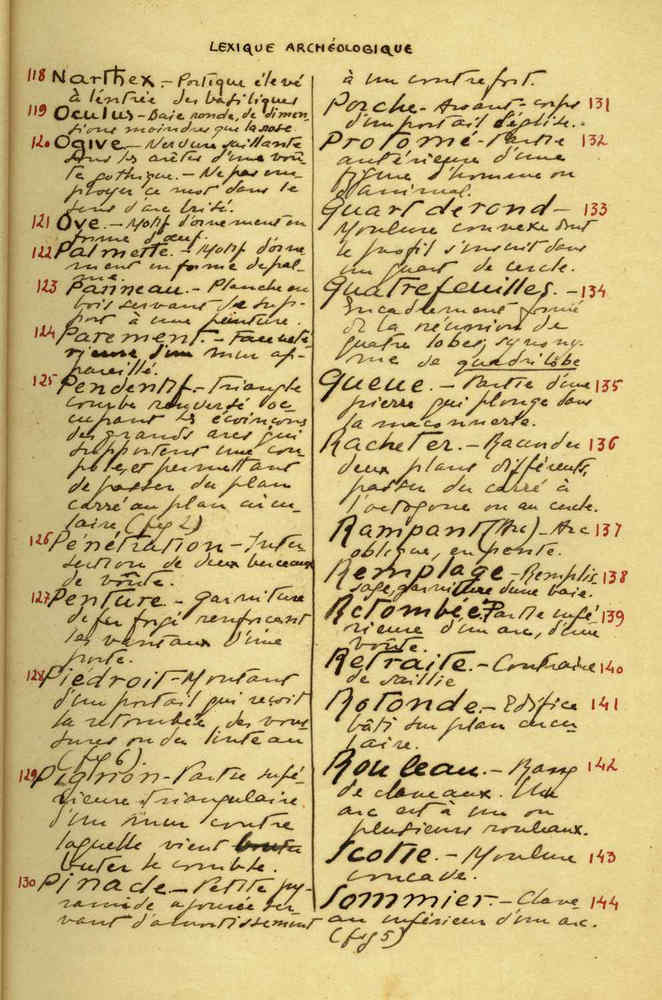 LEXIQUE ARCHÉOLOGIQUE
118 Narthex. - Portique élevé
à l'entrée des basiliques
119 Oculus - Baie ronde, de dimen-
sions moindres que la rose.
120 Ogive - Nervure saillante
sous les arêtes d'une voû-
te gothique. - Ne pas em-
ployer ce mot dans le
sens d'arc brisé.
121 Ove. - Motif d'ornement en
forme d'œuf.
122 Palmette. - Motif d'orne-
ment en forme de pal-
me.
123 Panneau. - Planche en
bois servant de sup-
port à une peinture.
124 Parement. - Face exté-
rieure d'un mur ap-
pareillé.
125 Pendentif. - Triangle
courbe renversé oc-
cupant les écoinçons
des grands arcs qui
supportent une cou
pole, et permettant
de passer du plan
carré au plan circu-
laire (fig 2)
126 Pénétration - Inter
section de deux berceaux
de voûte.
127 Penture. - Garniture
de fer forgé renforçant
les vantaux d'une
porte.
128 Piédroit - Montant
d'un portail qui reçoit
la retombée des vous
sures ou du linteau
(fig 6).
129 Pignon - Partie supé-
rieure triangulaire
d'un mur contre
laquelle vient
buter le comble.
130 Pinacle - Petite py-
ramide ajourée ser-
vant d'amortissement
à un contrefort.
Porche - Avant-corps 131
d'un portail d'église. -
Protomé - Partie 132
antérieure d'une
figure d'homme ou
d'animal.
Quart de rond - 133
Moulure convexe dont
le profil s'inscrit dans
un quart de cercle.
Quatrefeuilles. - 134
Encadrement formé
de la réunion de
quatre lobes, synony-
me de quadrilobe
Queue. - Partie d'une 135
pierre qui plonge dans
la maçonnerie.
Racheter. - Raccorder 136
deux plans différents,
passer du carré à
l'octogone ou au cercle.
Rampant (Arc) - Arc 137
oblique, en pente.
Remplage - Remplis 138
sage, garniture d'une baie.
Retombée - Partie infé 139
rieure d'un arc, d'une
voûte.
Retraite. - Contraire 140
de saillie
Rotonde - Edifice 141
bâti sur plan circu
laire.
Rouleau. - Rang 142
de claveaux. Un
arc est à un ou
plusieurs rouleaux.
Scotie. - Moulure 143
concave.
Sommier. - Clave 144
au inférieur d'un arc.
(fig 5)